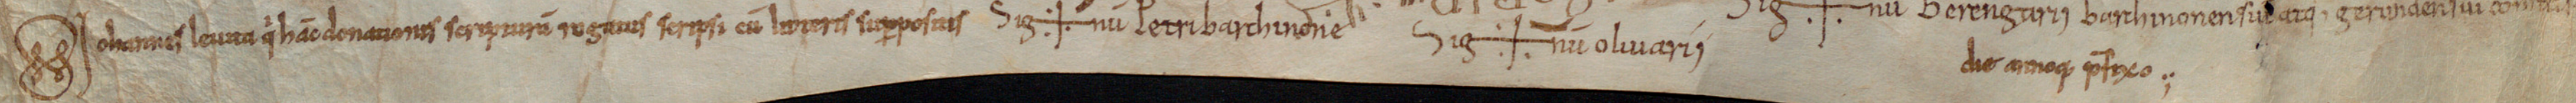 Johannes levita q hāc donationis scripturā rogatus scripsi cū litteris suppositis
Sig+nū Petri barchinone
Sig+nū olivarii
Sig+nū Berengarii barchinonensiū atq; gerundensiū comitis
die annoq; p̄fixo